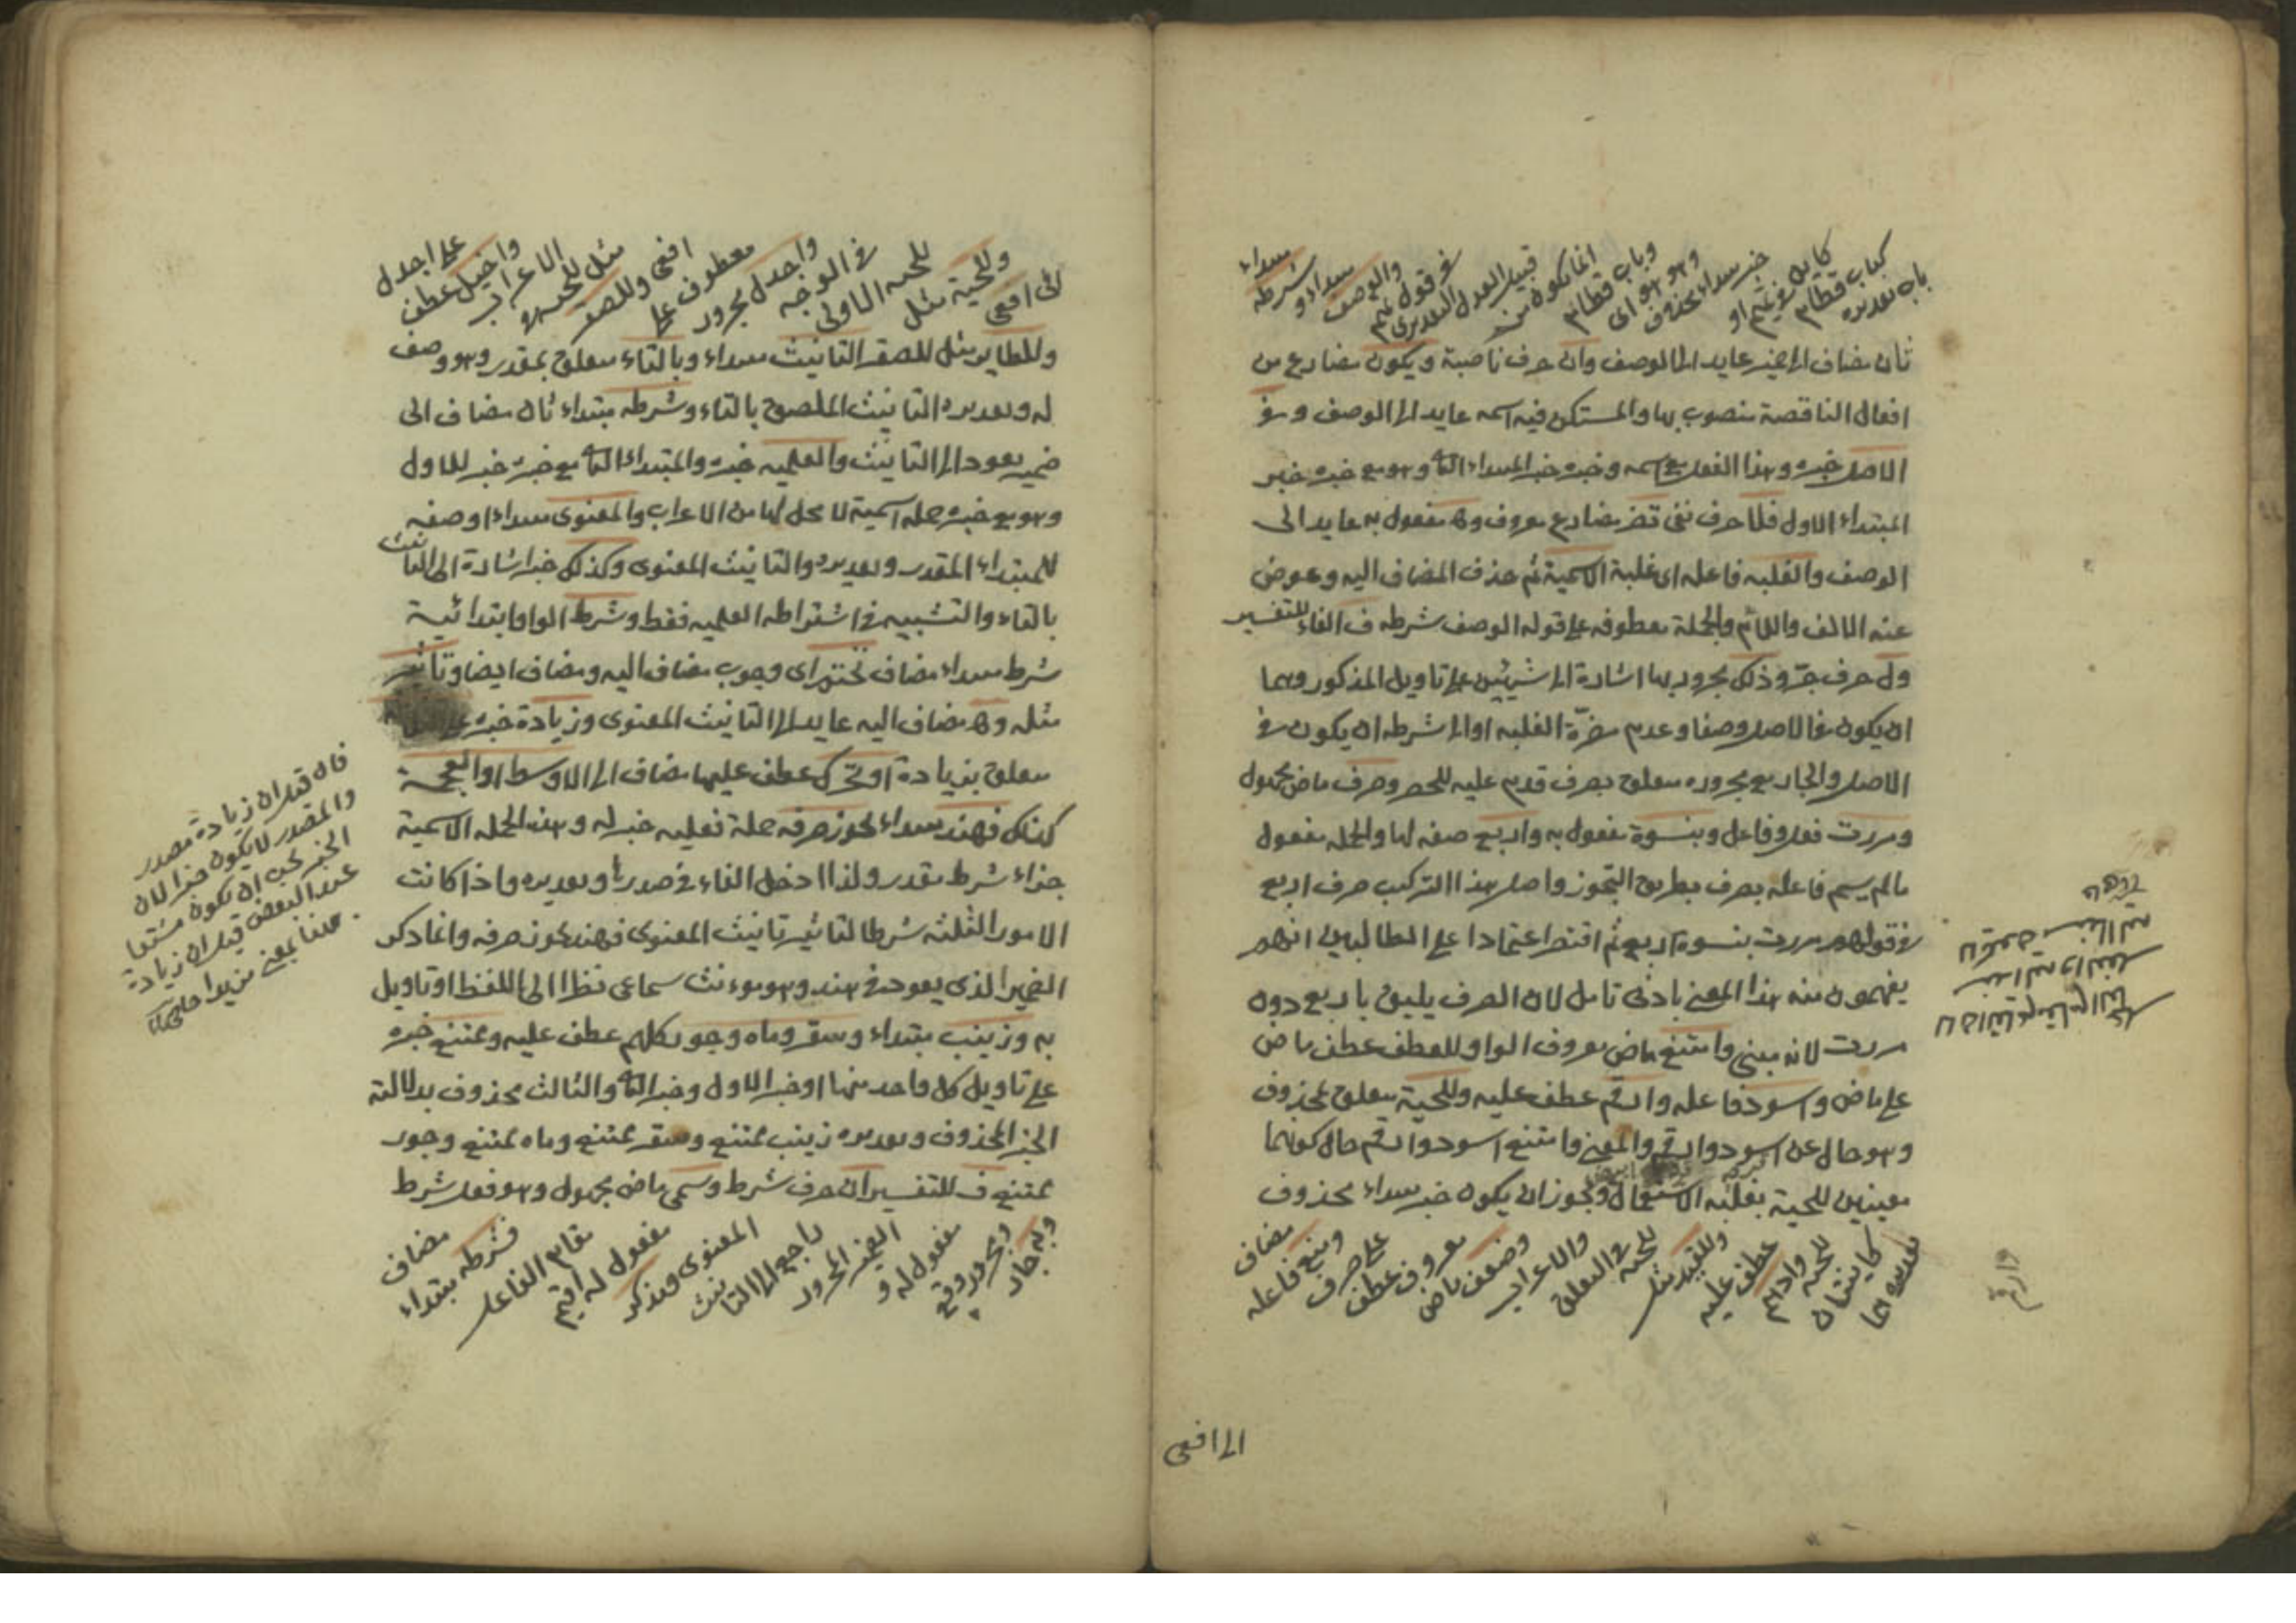 باب تقديره
كباب قطام
كاين في تميم او
خبر مبتداء محذوف
وهو هو اى
وباب قطام
انما يكون من
قبيل العدل التقديرى
في قول تميم
والوصف
مبتداء و
شرطه
مبتداء
ثان مضاف الى ضمير عايد الى الوصف وان حرف ناصبة ويكون مضارع من
افعال الناقصة منصوب بها والمستكن فيه اسمه عايد الى الوصف وفى
الاصل خبره وهذا الفعل مع اسمه وخبره خبر المبتداء الثانى وهو مع خبره خبر
المبتداء الاول فلا حرف نفى تضر مضارع معروف وه مفعول به عايد الى
الوصف والغلبه فاعله اى غلبة الاسمية ثم حذف المضاف اليه وعوض
عنه الالف واللام والجملة معطوفه على قوله الوصف شرطه ف الفاء للتفسير
ول حرف جر وذلك مجرور بها اشارة الى شيئين على تاويل المذكور وهما
ان يكون فى الاصل وصفا وعدم مضرة الغلبه او الى شرطه ان يكون فى
الاصل والجار مع مجروره متعلق بصرف قدم عليه للحصر وصرف ماض مجهول
ومررت فعل وفاعل وبنسوة مفعول به واربع صفه لها والجمله مفعول
مالم يسم فاعله بصرف بطريق التجوز واصل هذا التركيب صرف اربع
فى قولهم مررت بنسوة اربع ثم اقتصر اعتمادا على الطالبين انهم
يفهمون منه هذا المعنى بادنى تامل لان الصرف يليق باربع دون
مررت لانه مبنى وامتنع ماض معروف الواو للعطف عطف ماض
على ماض واسود فاعله وارقم عطف عليه وللحية متعلق بمحذوف
وهو حال عن اسود وارقم والمعنى وامتنع اسود وارقم حال كونهما
معينين للحية بغلبة الاستعمال ويجوز ان يكون خبر مبتداء محذوف
تقديره هما
كاينتان
للحيه
وادهم
عطف عليه
وللقيد مثل
للحيه فى التعلق
والاعراب
وضعف ماض
معروف عطف
على صرف
ومنع فاعله
مضاف
الى افعى
الى افعى
وللحية مثل
للحيه الاولى
فى الوجه
واجدل مجرور
معطوف على
افعى وللصقر
مثل للحيه فى
الاعراب
واخيل عطف
على اجدل
وللطاير مثل للصقر التانيث مبتداء وبالتاء متعلق بمقدر وهو وصف
له وتقديره التانيث الملصق بالتاء وشرطه مبتداء ثان مضاف الى
ضمير يعود الى التانيث والعلميه خبره والمبتداء الثانى مع خبره خبر للاول
وهو مع خبره جمله اسمية لا محل لها من الاعراب والمعنوى مبتداء او صفه
للمبتداء المقدر وتقديره والتانيث المعنوى وكذلك خبر اشارة الى التانيث
بالتاء والتشبيه فى اشتراط العلميه فقط وشرط الواو ابتدائية
شرط مبتداء مضاف تحتم اى وجوب مضاف اليه ومضاف ايضا وتاثير
مثله وه مضاف اليه عايد الى التانيث المعنوى وزيادة خبره على الثلثة
متعلق بزيادة او تحرك عطف عليها مضاف الى الاوسط او العجمة
كذلك فهند مبتداء يجوز صرفه جملة فعليه خبر له وهذه الجمله الاسمية
جزاء شرط مقدر ولذا ادخل الفاء فى صدرها وتقديره واذا كانت
الامور الثلثه شرطا لتاثير تانيث المعنوى فهند يجوز صرفه وانما ذكر
الضمير الذى يعود فى هند وهو مونث سماعى نظرا الى اللفظ او تاويل
به وزينب مبتداء وسقر وماه وجور كلهم عطف عليه وممتنع خبره
على تاويل كل واحد منها او خبر الاول وخبر الثانى والثالث محذوف بدلالة
الخبر المحذوف وتقديره زينب ممتنع وسقر ممتنع وماه ممتنع وجور
ممتنع ف للتفسير ان حرف شرط وسمى ماض مجهول وهو فعل شرط
وبه جار
ومجرور وقع
مفعول له و
الضمير المجرور
راجع الى التانيث
المعنوى ومذكر
مفعول له اقيم
مقام الفاعل
فشرطه مبتداء
مضاف
فان قيل ان زيادة مصدر
والمصدر لا يكون خبرا لان
الخبر يجب ان يكون مشتقا
عند البعض قيل ان زيادة
ههنا بمعنى مزيدا